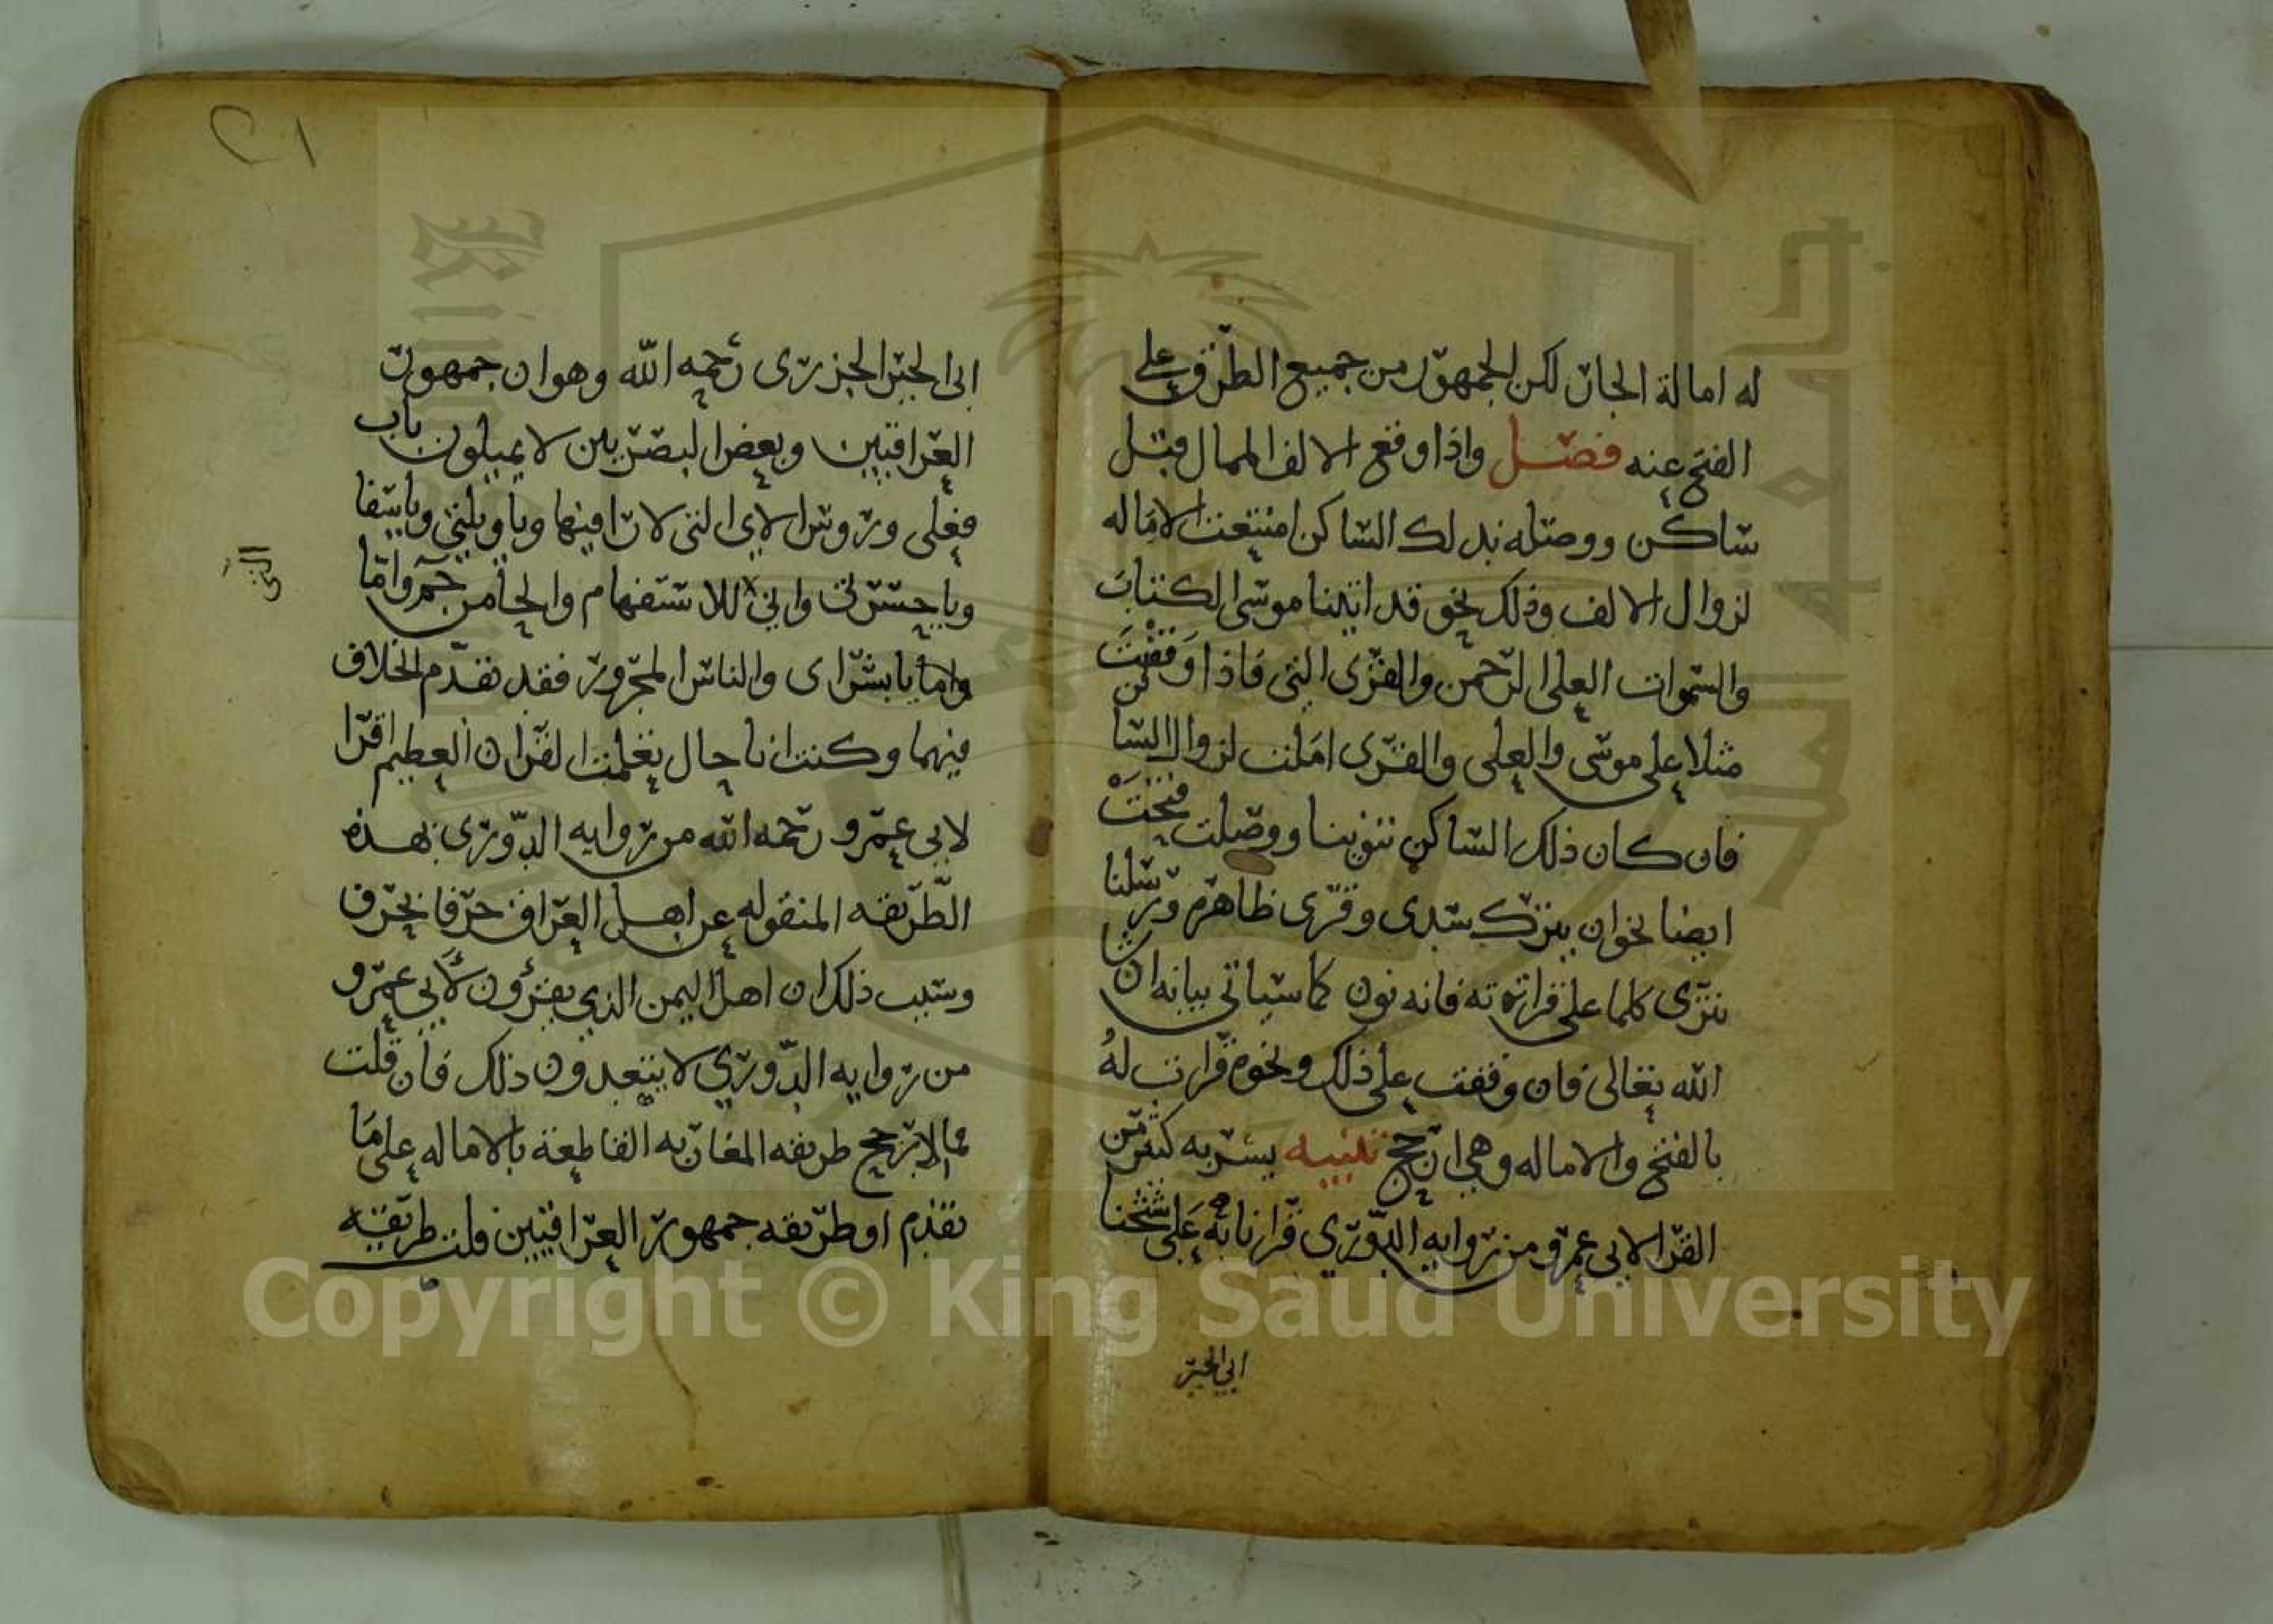 له امالة الجار لكن الجمهور من جميع الطرق على
الفتح عنه فصل واذا وقع الالف الممال قبل
ساكن ووصله بذلك الساكن امتنعت الاماله
لزوال الالف وذلك نحو قد اتينا موسى الكتاب
والسموات العلى الرحمن والقرى التي فاذا وقفت
مثلا على موسى والعلى والقرى املت لزوال الساكن
فان كان ذلك الساكن تنوينا ووصلت فتحت
ايضا نحو ان يترك سدى وقرى ظاهرة ورسلنا
تترى كلما على قراته فانه نون كما سياتي بيانه ان شا
الله تعالى فان وقفت على ذلك ونحوه قرات له
بالفتح والاماله وهي ارجح تنبيه يسر به كثير من
القرا لابي عمرو من روايه الدوري قراناه به على شيخنا
ابي الخير
ابى الخير الجزرى رحمه الله وهو ان جمهور
العراقيين وبعض البصريين لا يميلون باب
فعلى وروس الاي التى لا را فيها ويا ويلتى ويا اسفا
ويا حسرتى وانى للاستفهام والحا من حم واما
واما يا بشراى والناس المجرور فقد تقدم الخلاف
فيهما وكنت انا حال تعلمت القران العظيم اقرا
لابى عمرو رحمه الله من روايه الدورى بهذه
الطريقه المنقوله عن اهل العراق حرفا بحرف
وسبب ذلك ان اهل اليمن الذي يقرؤن لأبي عمرو
من روايه الدوري لا يتعدون ذلك فان قلت
فما الارجح طريقه المغاربه القاطعة بالاماله على ما
تقدم او طريقه جمهور العراقيين قلت طريقه
Copyright © King Saud University